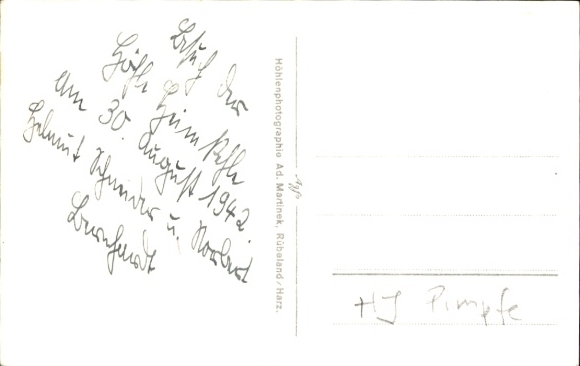 Besuch der
Höhle Heimkehle
am 30. August 1942.
Helmut Schneider u. Norbert
Bernhardt
Höhlenphotographie Ad. Martinek, Rübeland/Harz.
HJ Pimpfe